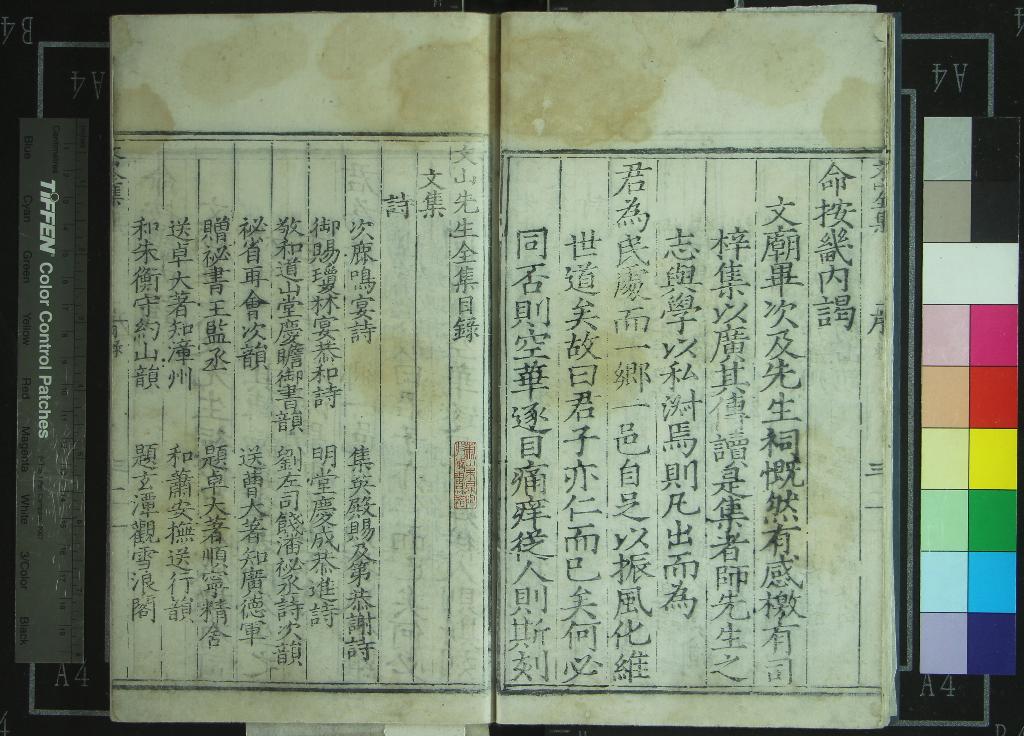 命按畿內謁
文廟畢次及先生祠慨然有感檄有司
梓集以廣其傳讀是集者師先生之
志與學以私淑焉則凡出而為
君為民處而一鄉一邑自足以振風化維
世道矣故曰君子亦仁而已矣何必
同否則空華逐目痛痒從人則斯刻
文山先生全集目錄
文集
詩
次鹿鳴宴詩 集英殿賜及第恭謝詩
御賜瓊林宴恭和詩 明堂慶成恭進詩
敬和道山堂慶瞻御書韻 劉左司餞潘秘丞詩次韻
秘省再會次韻 送曹大著知廣德軍
贈秘書王監丞 題卓大著順寧精舍
送卓大著知漳州 和蕭安撫送行韻
和朱衡守約山韻 題玄潭觀雪浪閣
TIFFEN Color Control Patches
Blue Cyan Green Yellow Red Magenta White 3/Color Black
A4
A4
A4
A4
B4